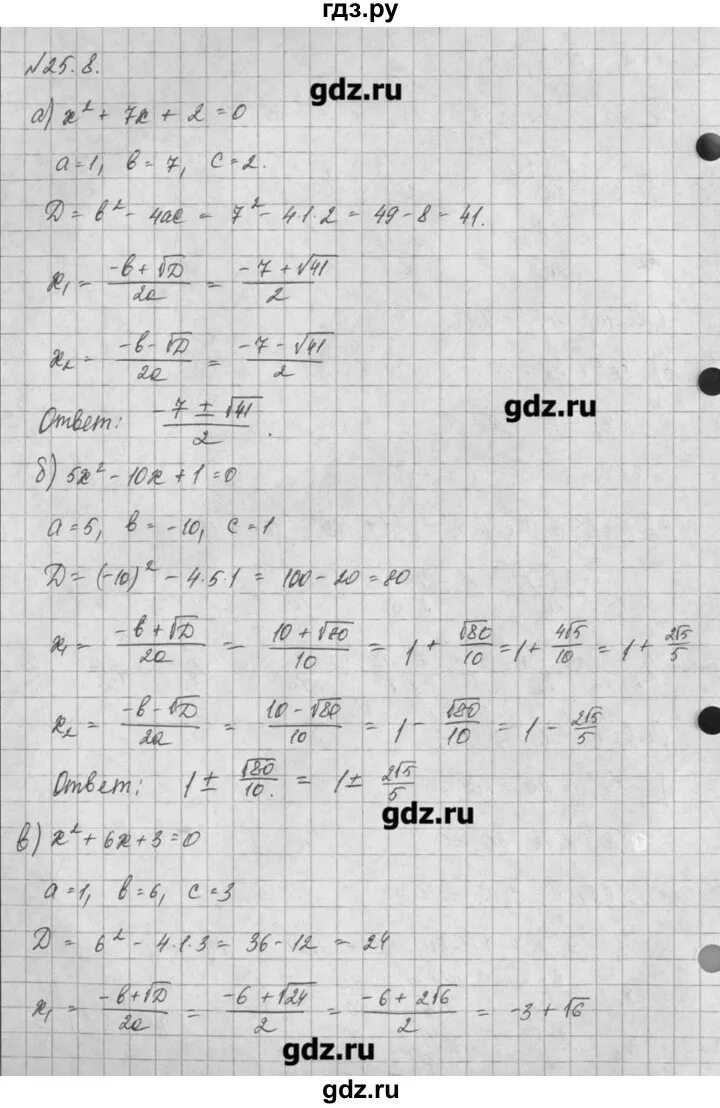 гдз.ру
№25.8.
gdz.ru
а) x² + 7x + 2 = 0
a=1, в=7, c=2.
Д = в² - 4ac = 7² - 4·1·2 = 49 - 8 = 41.
x₁ = (-в+√Д)/2a = (-7+√41)/2
x₂ = (-в-√Д)/2a = (-7-√41)/2
gdz.ru
Ответ: (-7±√41)/2.
б) 5x² - 10x + 1 = 0
a=5, в=-10, c=1
Д = (-10)² - 4·5·1 = 100 - 20 = 80
x₁ = (-в+√Д)/2a = (10+√80)/10 = 1 + √80/10 = 1 + 4√5/10 = 1 + 2√5/5
x₂ = (-в-√Д)/2a = (10-√80)/10 = 1 - √80/10 = 1 - 2√5/5
Ответ: 1 ± √80/10. = 1 ± 2√5/5
gdz.ru
в) x² + 6x + 3 = 0
a=1, в=6, c=3
Д = 6² - 4·1·3 = 36 - 12 = 24
x₁ = (-в+√Д)/2a = (-6+√24)/2 = (-6+2√6)/2 = -3+√6
gdz.ru
gdz.ru